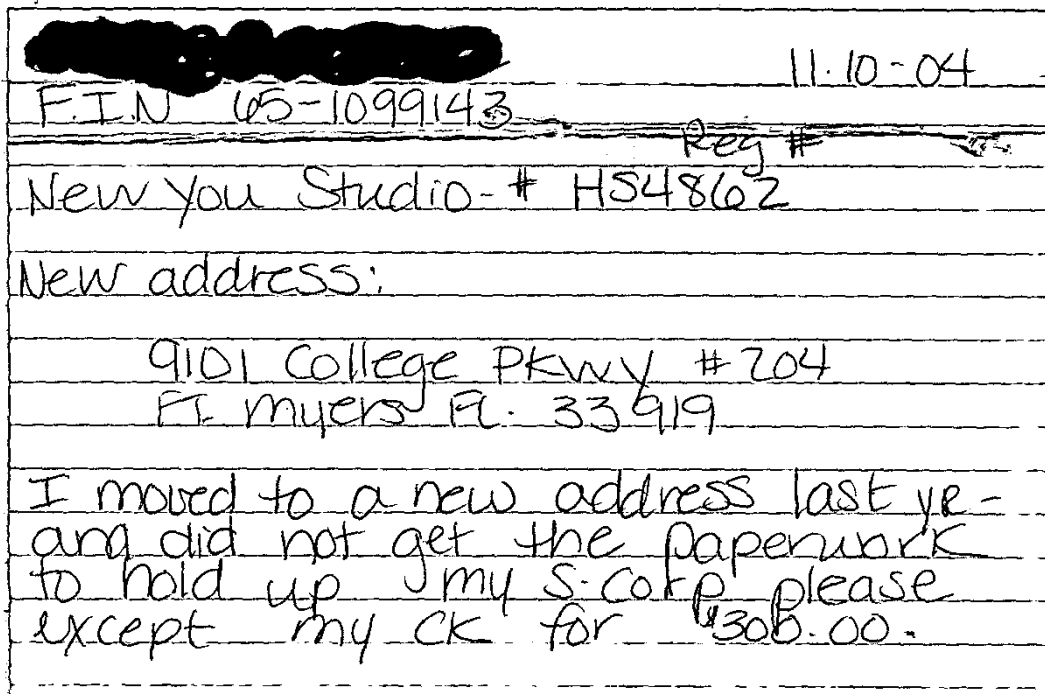 11-10-04
F.I.N 65-1099143
Reg #
New You Studio - # HS4862
New address:
9101 College Pkwy #204
Ft. Myers FL. 33919
I moved to a new address last yr -
and did not get the paperwork
to hold up my S-Corp please
except my ck for $300.00.